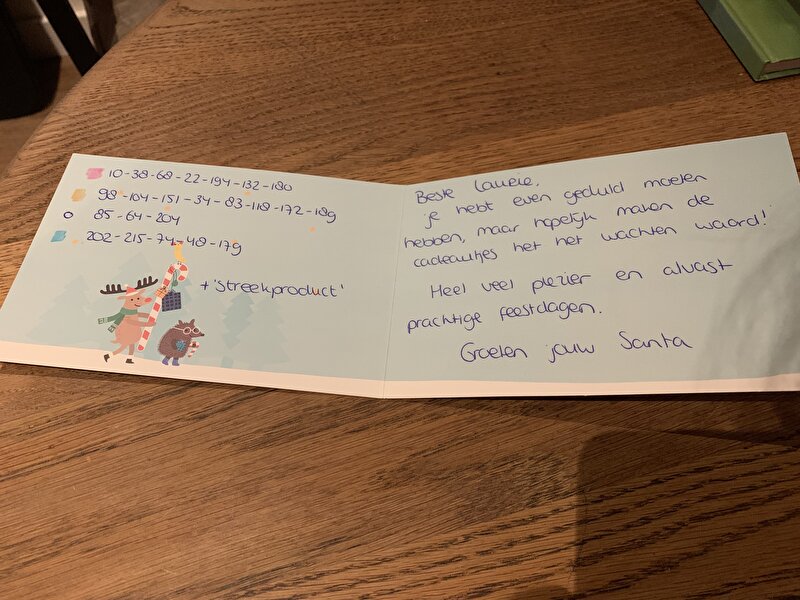 10-38-68-22-194-132-180
98-104-151-34-83-118-172-189
85-64-204
202-215-74-48-179
+ 'streekproduct'
Beste Laurie,
je hebt even geduld moeten
hebben, maar hopelijk maken de
cadeautjes het het wachten waard!
Heel veel plezier en alvast
prachtige feestdagen.
Groeten jouw Santa